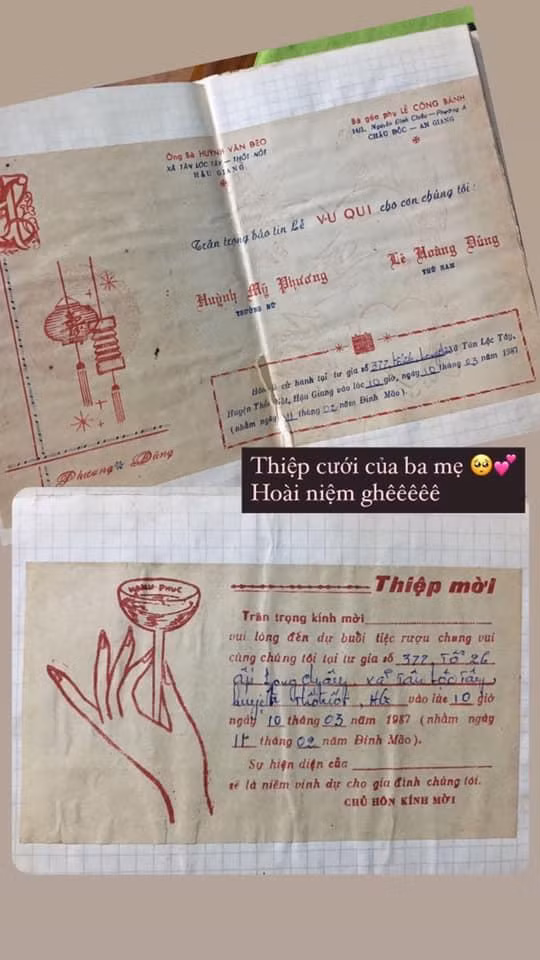 Ông Bà HUỲNH VĂN ĐEO
XÃ TÂN LỘC TÂY — THỐT NỐT
HẬU GIANG
Bà góa phụ LÊ CÔNG BÁNH
Nguyễn Đình Chiểu — Phường A
CHÂU ĐỐC — AN GIANG
Trân trọng báo tin Lễ VU QUI cho con chúng tôi :
Huỳnh Mỹ Phương
TRƯỞNG NỮ
Lê Hoàng Dũng
THỨ NAM
Hôn lễ cử hành tại tư gia số 377, xã Tân Lộc Tây,
Huyện Thốt Nốt, Hậu Giang vào lúc 10 giờ, ngày 10 tháng 03 năm 1987
(nhằm ngày 11 tháng 02 năm Đinh Mão).
Phương Dũng
Thiệp cưới của ba mẹ 🥺💕
Hoài niệm ghêêêêê
HẠNH PHÚC
Thiệp mời
Trân trọng kính mời
vui lòng đến dự buổi tiệc rượu chung vui
cùng chúng tôi tại tư gia số 377, Tổ 26
ấp Long Châu, xã Tân Lộc Tây
huyện Thốt Nốt, HG vào lúc 10 giờ
ngày 10 tháng 03 năm 1987 (nhằm ngày
11 tháng 02 năm Đinh Mão).
Sự hiện diện của
sẽ là niềm vinh dự cho gia đình chúng tôi.
CHỦ HÔN KÍNH MỜI